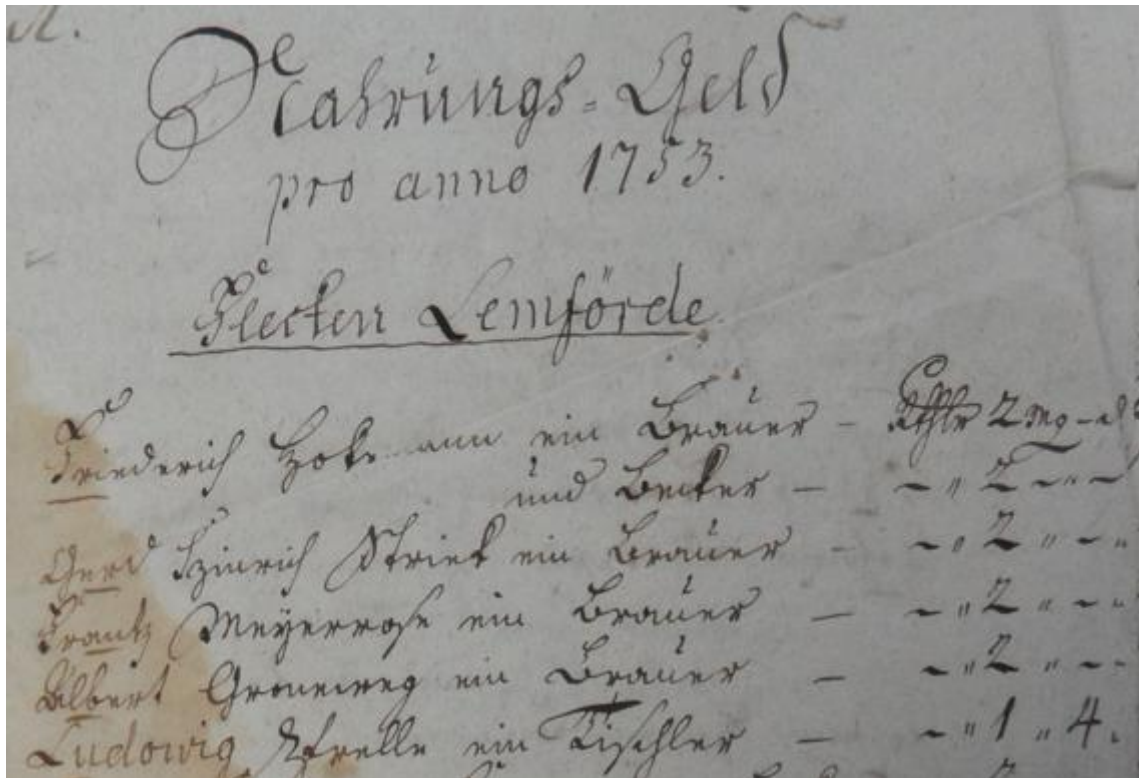 Nahrungs-Geld
pro anno 1753.
Flecken Lemförde
Friederich ein Brauer - Rthlr 2 mg - d
und Becker - - " 2 - " -
Gerd Hinrich Striek ein Brauer - - " 2 " - "
Frantz Meyerrose ein Brauer - - " 2 " - -
Albert Groneweg ein Brauer - - " 2 " - -
Ludowig ein Tischler - - " 1 " 4.